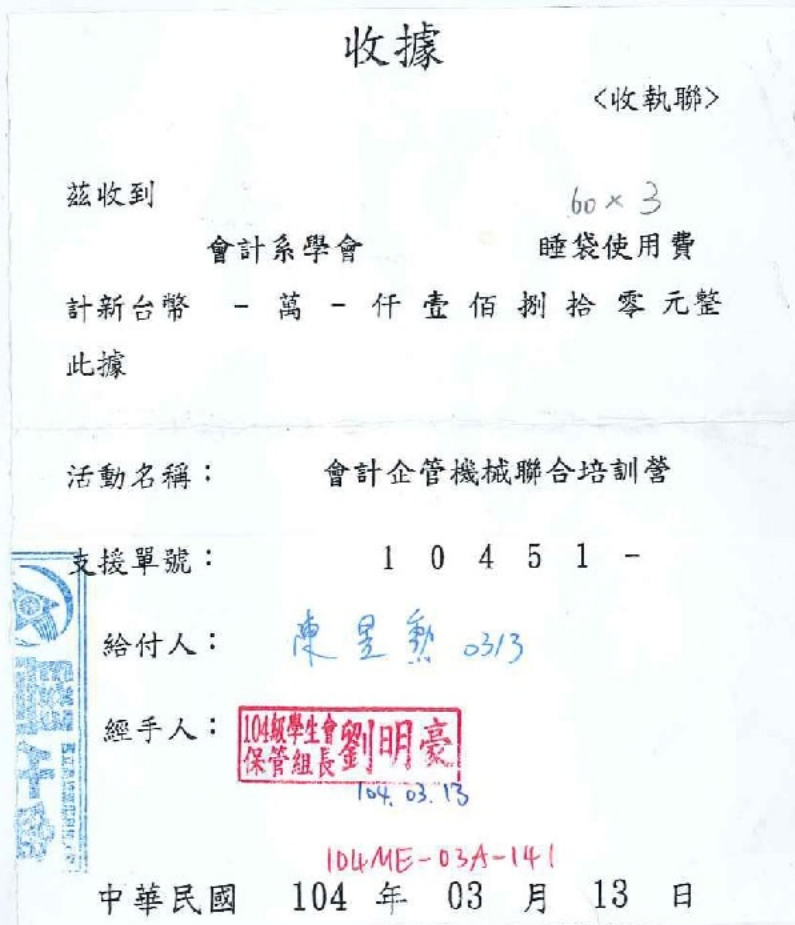 收據
<收執聯>
茲收到
60×3
會計系學會 睡袋使用費
計新台幣 - 萬 - 仟 壹 佰 捌 拾 零 元整
此據
活動名稱： 會計企管機械聯合培訓營
支援單號： 1 0 4 5 1 -
給付人： 陳昱勳 0313
經手人： 104級學生會 保管組長 劉明豪
104.03.13
104ME-03A-141
中華民國 104 年 03 月 13 日